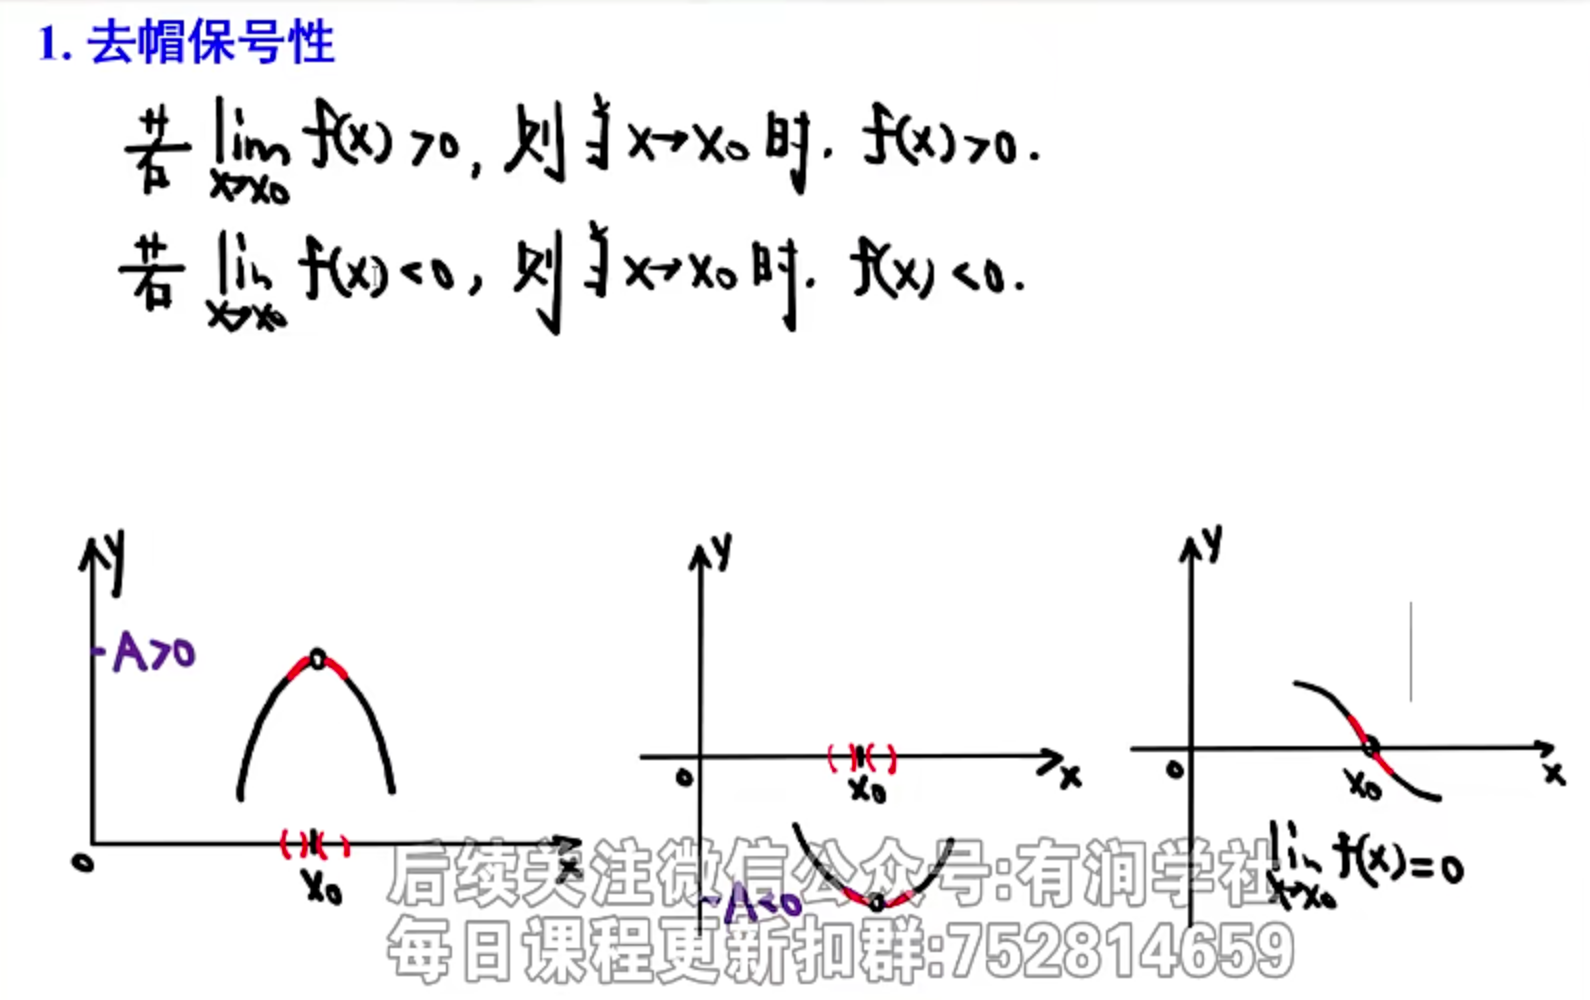 1. 去帽保号性
若 lim f(x) >0, 则当 x→x₀ 时. f(x)>0.
x→x₀
若 lim f(x) <0, 则当 x→x₀ 时. f(x) <0.
x→x₀
y
A>0
0
x₀
x
y
0
x₀
x
A<0
y
0
x₀
x
lim f(x)=0
x→x₀
后续关注微信公众号:有润学社
每日课程更新扣群:752814659